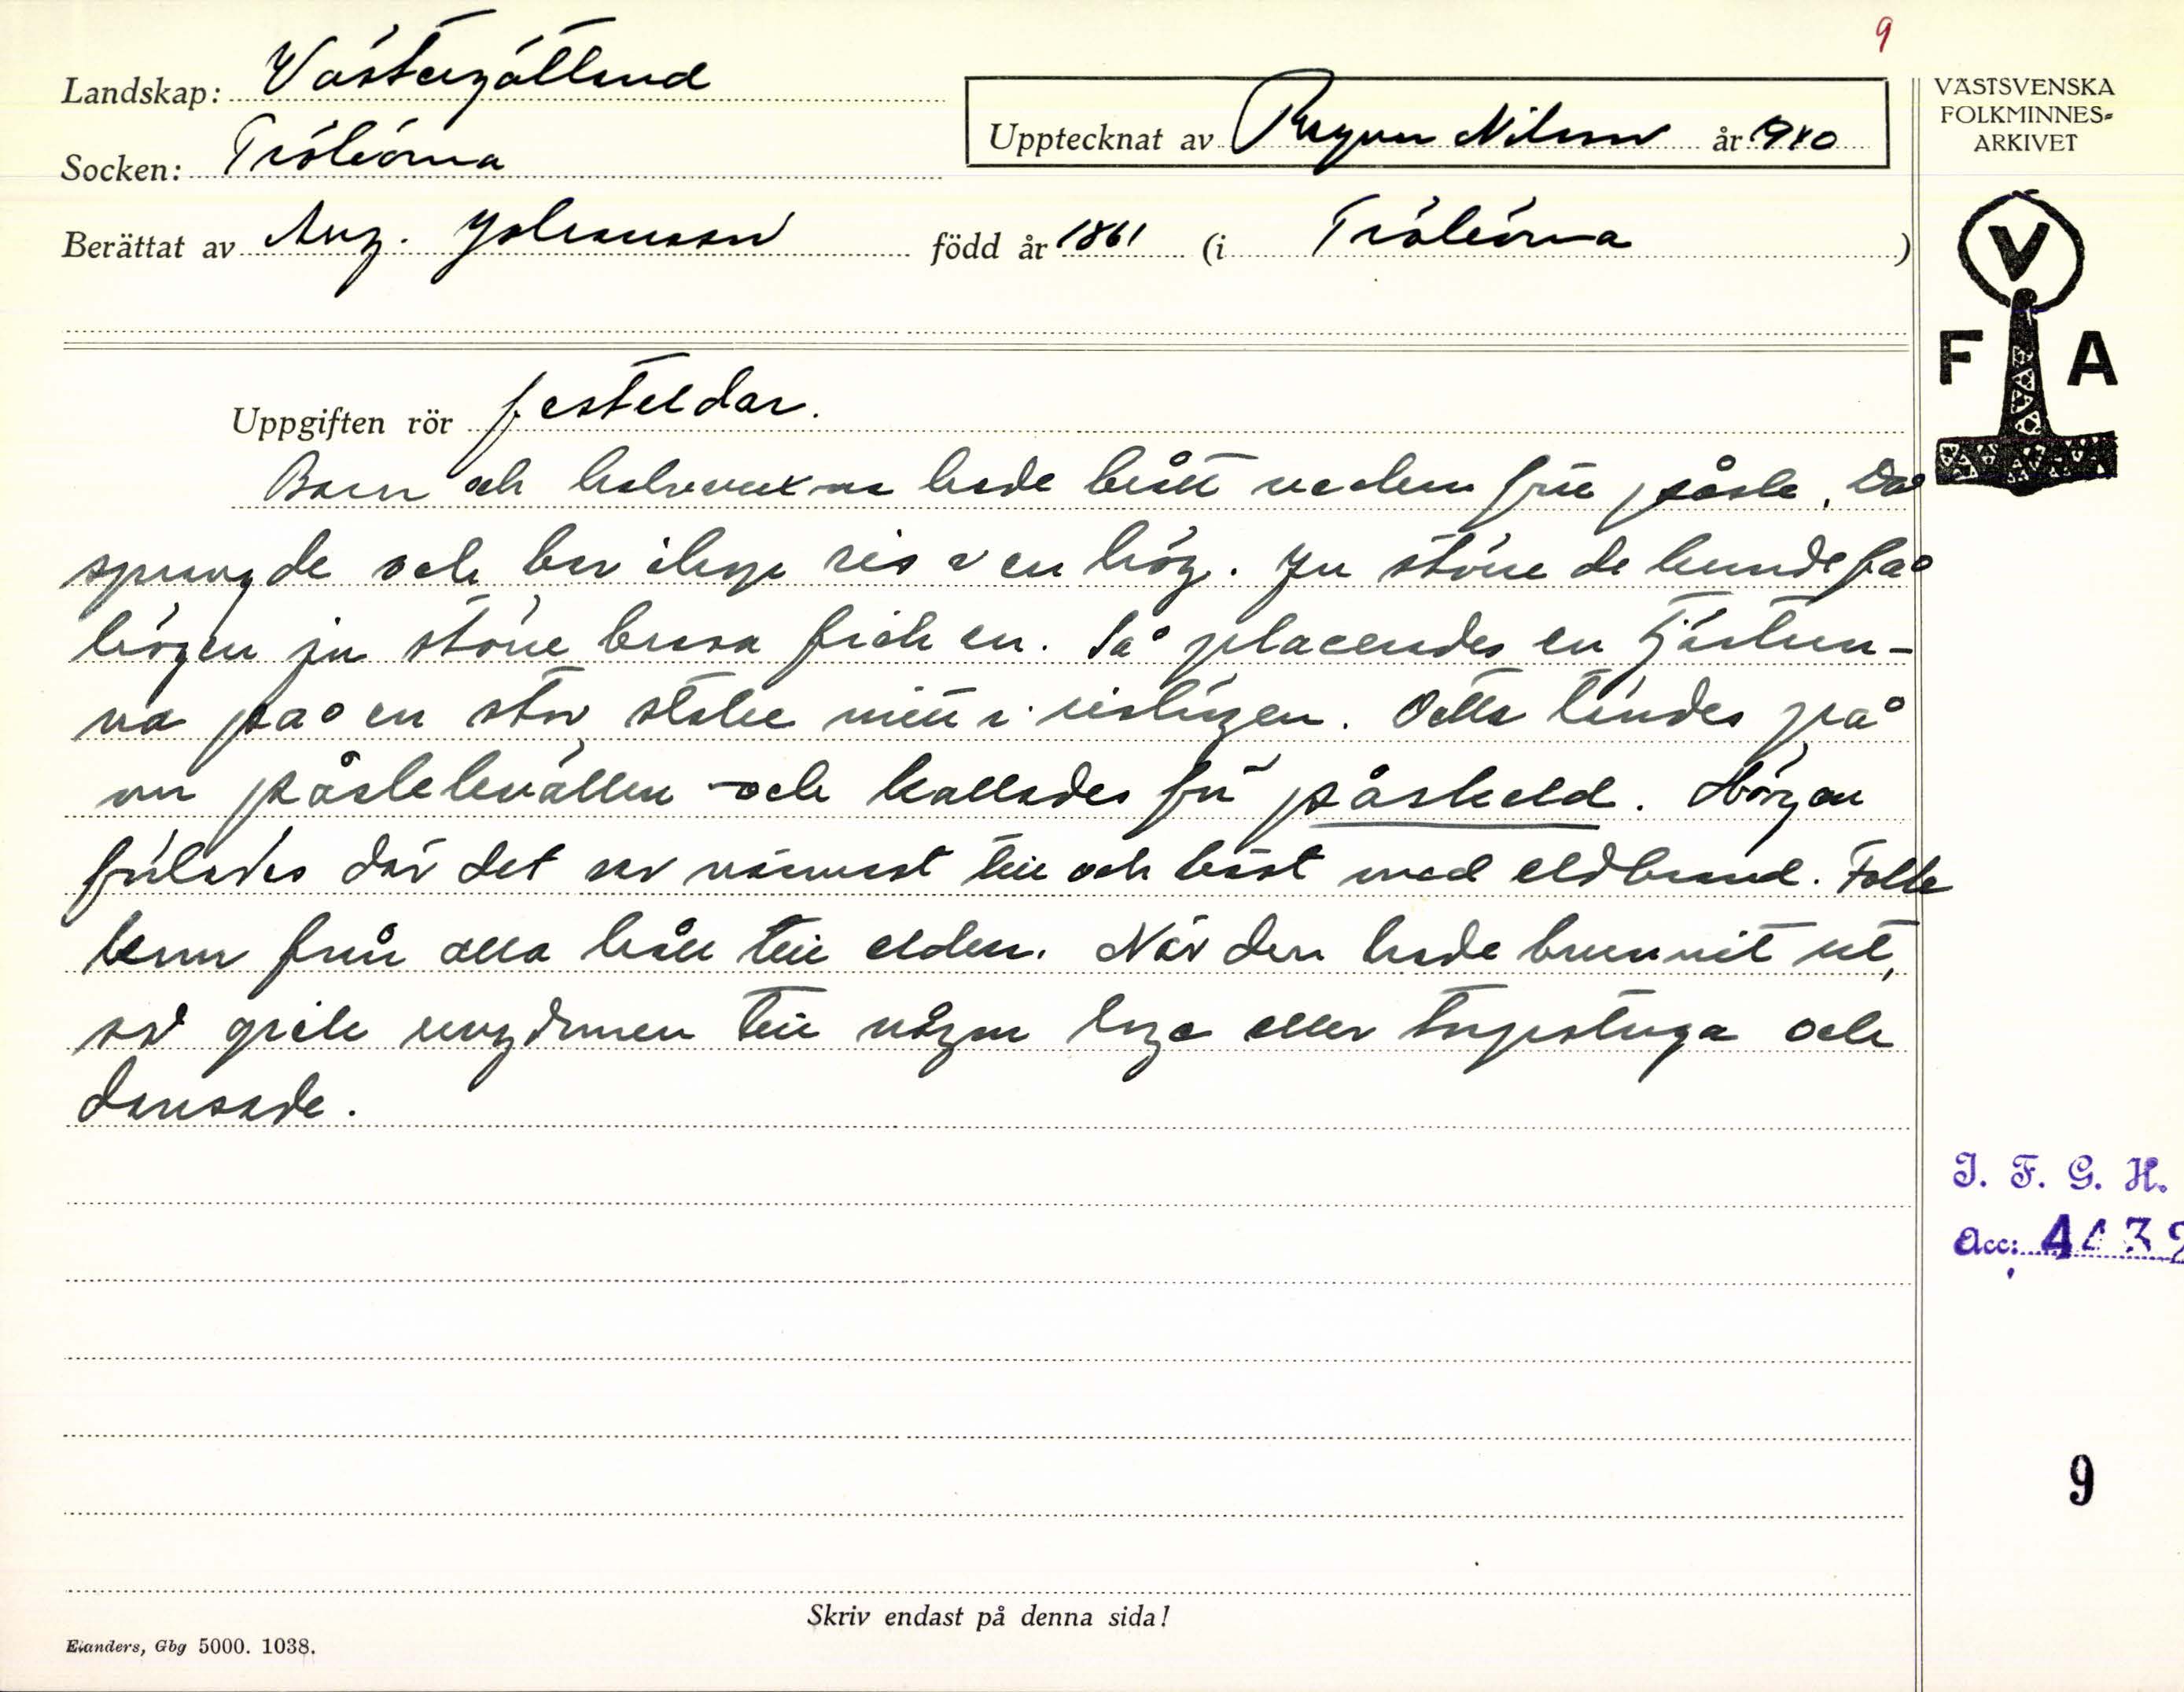 9
Landskap: Västergötland
Socken: Trökörna
Upptecknat av Ragnar Nilsson år 1940
VÄSTSVENSKA
FOLKMINNES=
ARKIVET
Berättat av Aug. Johansson född år 1861 (i Trökörna)
V
F A
Uppgiften rör festeldar.
Barn och halvvuxna hade brått veckan före påske. Då
sprang de och bar ihop ris i en hög. Ju större de kunde få
högen ju större brasa fick en. Så placerades en tjärtun-
na på en stor stake mitt i rishögen. Detta tändes på
om påskekvällen och kallades för påskeld. Högen
lades där det var närmast till och bäst med eldbrand. Folk
kom från alla håll till elden. När den hade brunnit ut,
så gick ungdomen till någon loge eller torpstuga och
dansade.
I. F. G. H.
Acc: 4432
9
Skriv endast på denna sida!
Elanders, Gbg 5000. 1038.